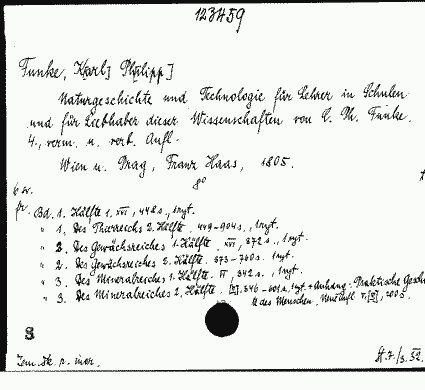 123459
Funke, K[arl] Ph[ilipp]
Naturgeschichte und Technologie für Lehrer in Schulen
und für Liebhaber dieser Wissenschaften von C. Ph. Funke.
4., verm. u. verb. Aufl.
Wien u. Prag, Franz Haas, 1805.
8°
6 sv.
fr. Bd. 1. Hälfte 1. XVI, 448 s., 1 ryt.
" 1. Des Thierreichs 2. Hälfte. 449-904 s., 1 ryt.
" 2. Des Gewächsreiches 1. Hälfte. XVI, 372 s., 1 ryt.
" 2. Des Gewächsreiches 2. Hälfte. 373-760 s. 1 ryt.
" 3. Des Mineralreiches 1. Hälfte. II, 342 s., 1 ryt.
" 3. Des Mineralreiches 2. Hälfte. [2], 346-601 s., 1 ryt. + Anhang: Praktische Gesch
d. des Menschen.
8